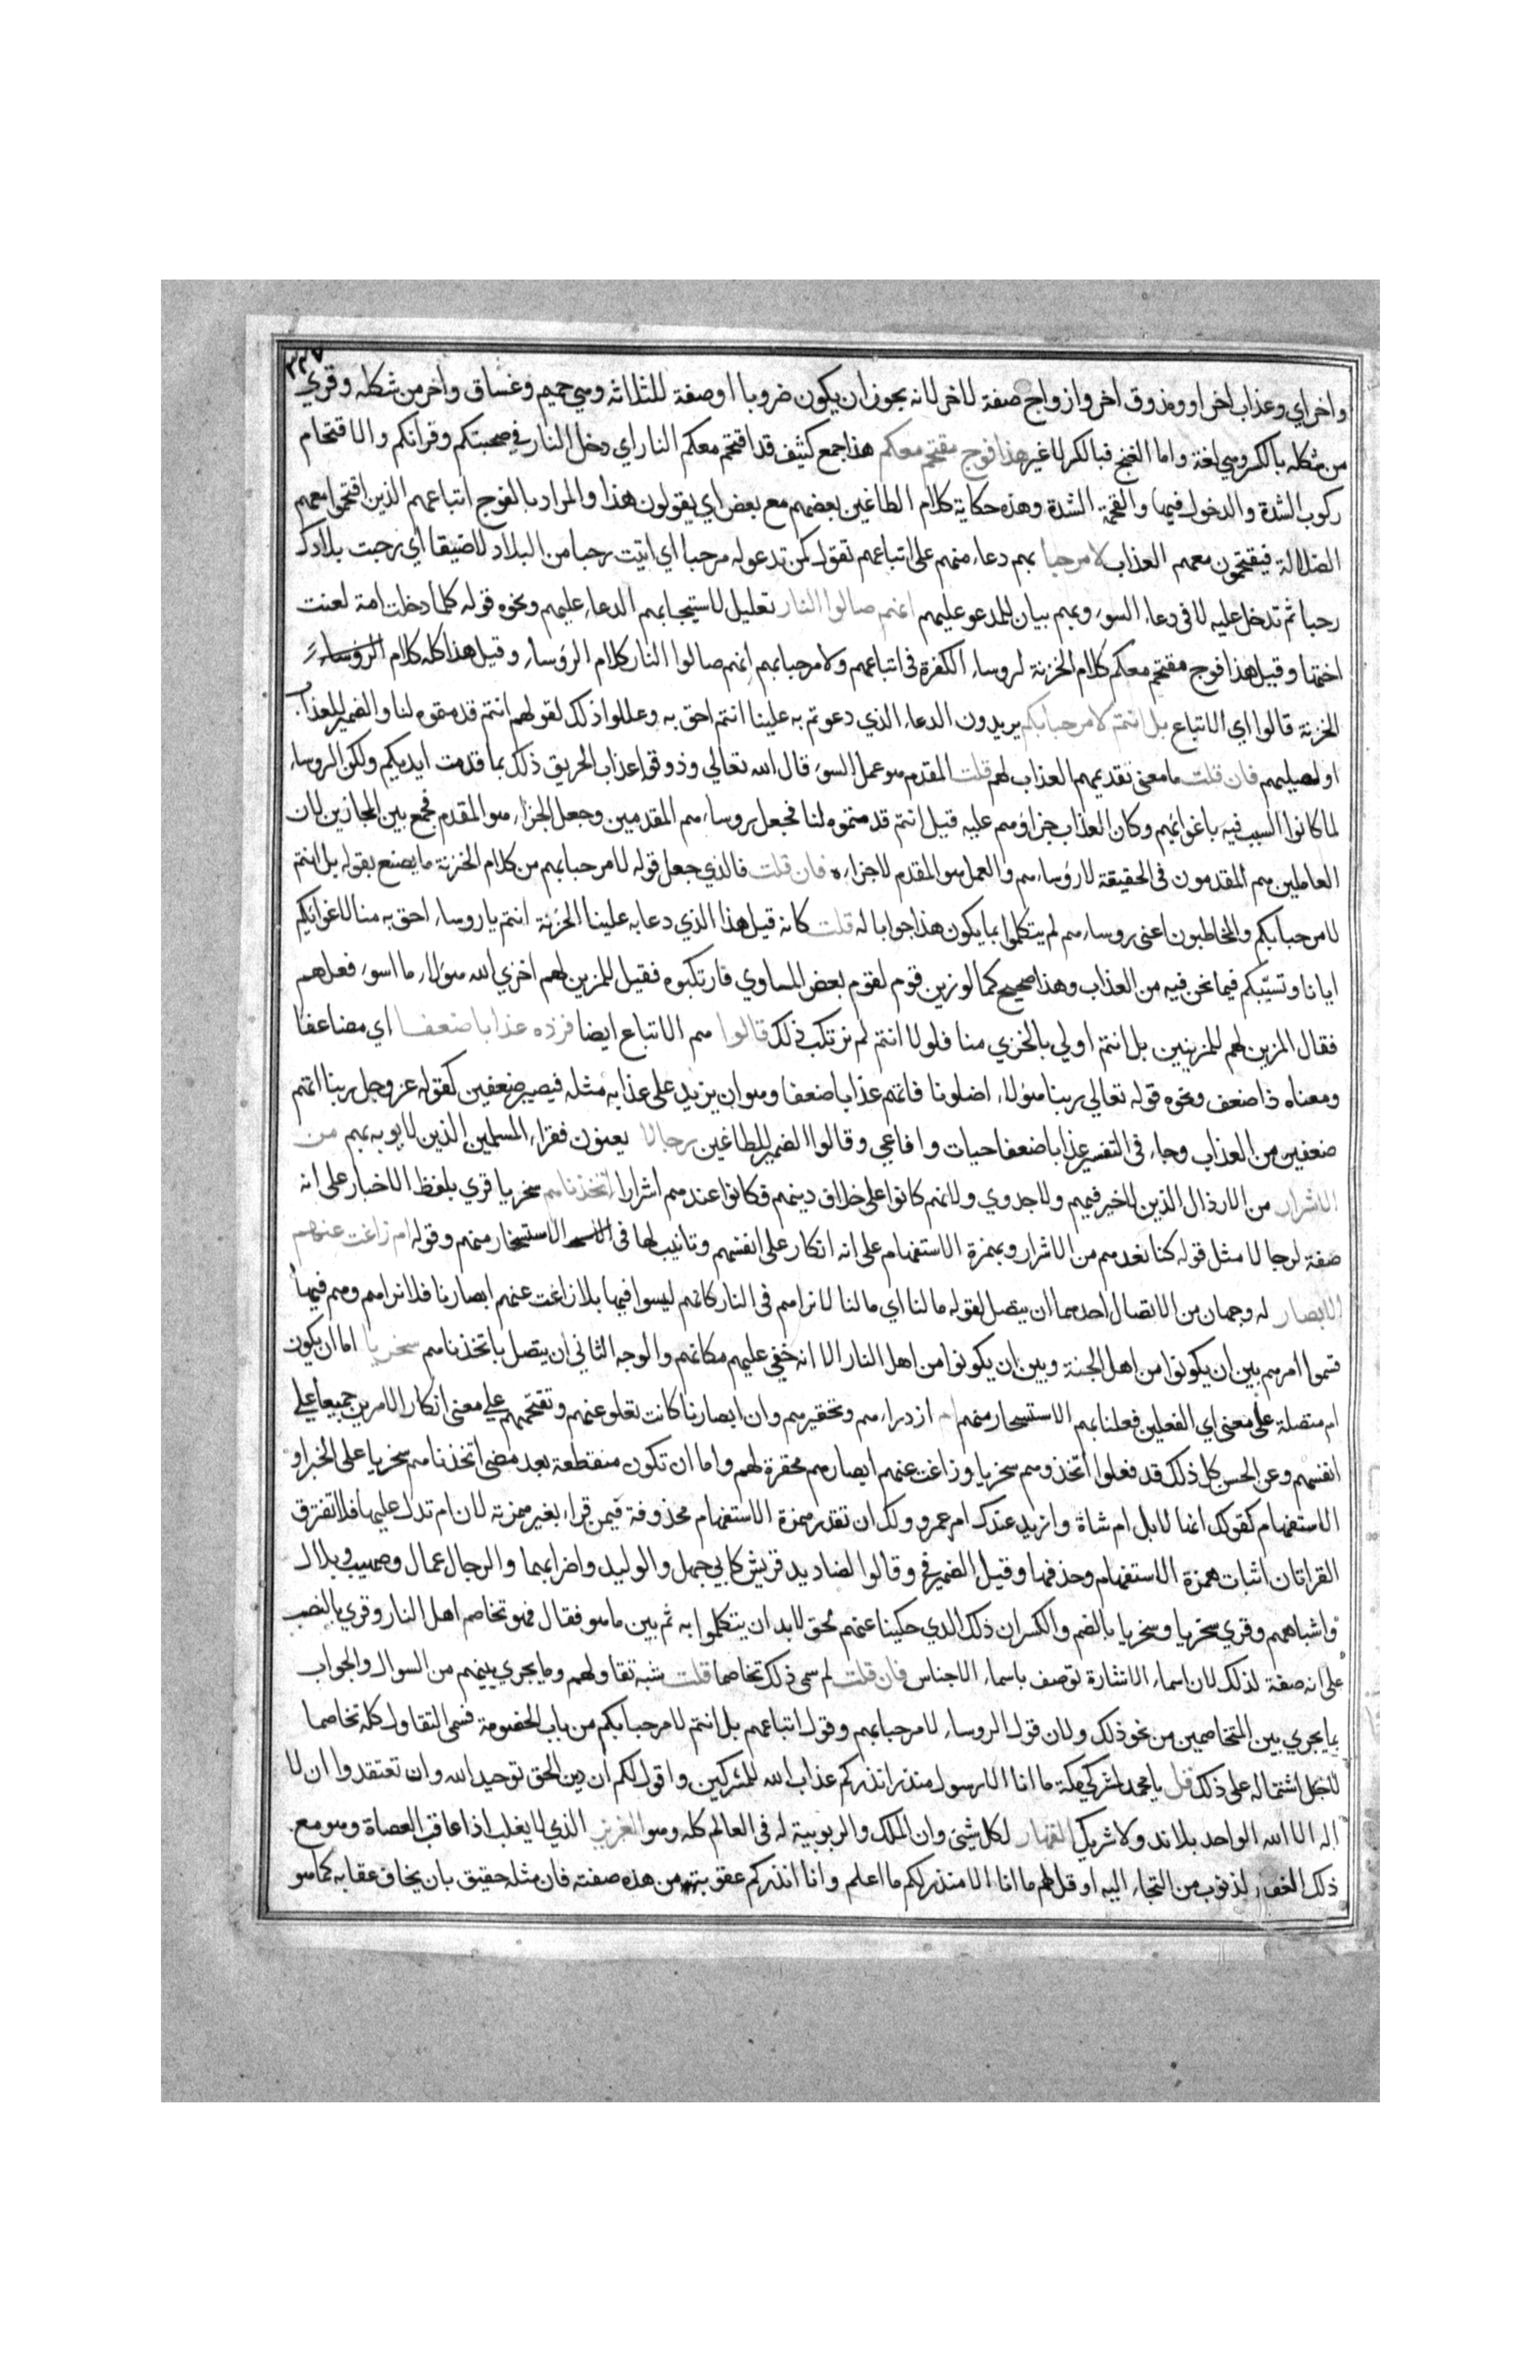 ٣٢٧
واخر اي وعذاب اخر او ومذوق اخر وازواج صفة لاخر لانه يجوز ان يكون ضروبا او صفة للثلاثة وهي حميم وغساق واخر من شكله وقري
من شكله بالكسر وهي لغة واما الغنج فبالكسر لا غير هذا فوج مقتحم معكم هذا جمع كثيف قد اقتحم معكم النار اي دخل النار في صحبتكم وقرانكم والاقتحام
ركوب الشدة والدخول فيها والقحمة الشدة وهذه حكاية كلام الطاغين بعضهم مع بعض اي يقولون هذا والمراد بالفوج اتباعهم الذين اقتحموا معهم
الضلالة فيقتحمون معهم العذاب لا مرحبا بهم دعاء منهم على اتباعهم تقول لمن تدعو له مرحبا اي اتيت رحبا من البلاد لا ضيقا أي رحبت بلادك
رحبا ثم تدخل عليه لا في دعاء السوء وبهم بيان للمدعو عليهم انهم صالوا النار تعليل لاستيجابهم الدعاء عليهم ونحوه قوله كلما دخلت امة لعنت
اختها وقيل هذا فوج مقتحم معكم كلام الخزنة لروساء الكفرة في اتباعهم ولا مرحبا بهم انهم صالوا النار كلام الرؤساء وقيل هذا كله كلام الروساء
الخزنة قالوا اي الاتباع بل انتم لا مرحبا بكم يريدون الدعاء الذي دعوتم به علينا انتم احق به وعللوا ذلك لقولهم انتم قدمتموه لنا والضمير للعذاب
او لصليهم فان قلت ما معنى تقديمهم العذاب لهم قلت المقدم هو عمل السوء قال الله تعالي وذوقوا عذاب الحريق ذلك بما قدمت ايديكم ولكن الروساء
لما كانوا السبب فيه باغوائهم وكان العذاب جزاؤهم عليه قيل انتم قدمتموه لنا فجعل روساءهم المقدمين وجعل الجزاء هو المقدم فجمع بين المجازين لان
العاملين هم المقدمون في الحقيقة لا رؤساءهم والعمل هو المقدم لا جزاءه فان قلت فالذي جعل قوله لا مرحبا بهم من كلام الخزنة ما يصنع بقوله بل انتم
لا مرحبا بكم والمخاطبون اعنى روساءهم لم يتكلموا بما يكون هذا جوابا له قلت كانه قيل هذا الذي دعا به علينا الخزنة انتم يا روساء احق به منا لاغوائكم
ايانا وتسبّبكم فيما نحن فيه من العذاب وهذا صحيح كما لو زين قوم لقوم بعض المساوي فارتكبوه فقيل للمزين لهم اخزي الله هؤلاء ما اسوء فعلهم
فقال المزين لهم للمزينين بل انتم اولي بالخزي منا فلولا انتم لم نرتكب ذلك قالوا هم الاتباع ايضا فزده عذابا ضعفا اي مضاعفا
ومعناه ذا ضعف ونحوه قوله تعالي ربنا هؤلاء اضلونا فاتهم عذابا ضعفا وهو ان يزيد على عذابه مثله فيصير ضعفين كقوله عز وجل ربنا اتهم
ضعفين من العذاب وجاء في التفسير عذابا ضعفا حيات وافاعي وقالوا الضمير للطاغين رجالا يعنون فقراء المسلمين الذين لا يوبه بهم من
الاشرار من الارذال الذين لا خير فيهم ولا جدوي ولانهم كانوا على خلاف دينهم فكانوا عندهم اشرارا اتخذناهم سخريا قري بلفظ الاخبار على انه
صفة لرجالا مثل قوله كنا نعدهم من الاشرار وبهمزة الاستفهام على انه انكار على انفسهم وتانيب لها في الاستسخار منهم وقوله ام زاغت عنهم
الابصار له وجهان من الاتصال احدهما ان يتصل لقوله ما لنا اي ما لنا لا نراهم في النار كانهم ليسوا فيها بل ازاغت عنهم ابصارنا فلا نراهم وهم فيها
قسموا امرهم بين ان يكونوا من اهل الجنة وبين ان يكونوا من اهل النار الا انه خفي عليهم مكانهم والوجه الثاني ان يتصل باتخذناهم سخريا اما ان يكون
ام متصلة على معنى اي الفعلين فعلنا بهم الاستسخار منهم ام ازدراءهم وتحقيرهم وان ابصارنا كانت تعلو عنهم وتقتحمهم علي معنى انكار الامرين جميعا علي
انفسهم وعن الحسن كل ذلك قد فعلوا أتخذوهم سخريا وزاغت عنهم ابصارهم محقرة لهم واما ان تكون منقطعة بعد مضى اتخذناهم سخريا على الخبر او
الاستفهام كقولك انها لابل ام شاة وازيد عندك ام عمرو ولك ان تقدر همزة الاستفهام محذوفة فيمن قراء بغير همزته لان ام تدل عليها فلا تفترق
القراتان اثبات همزة الاستفهام وحذفها وقيل الضمير في وقالوا لصناديد قريش كابي جهل والوليد واضرابهما والرجال عمال وصهيب وبلال
واشباههم وقري سخريا وسخريا بالضم والكسر ان ذلك الذي حكينا عنهم لحق لابد ان يتكلموا به ثم بين ما هو فقال فهو تخاصم اهل النار وقري بالنصب
على انه صفة لذلك لان اسماء الاشارة توصف باسماء الاجناس فان قلت لم سمى ذلك تخاصما قلت شبه تقاولهم وما يجري بينهم من السوال والجواب
بما يجري بين المتخاصمين من نحو ذلك ولان قول الروساء لا مرحبا بهم وقول اتباعهم بل انتم لا مرحبا بكم من باب الخصومة فسمى التقاول كله تخاصما
لاجل اشتماله على ذلك قل يا محمد لمشركي مكة ما انا الا رسول منذر انذركم عذاب الله للمشركين واقول لكم أن دين الحق توحيد الله وان تعتقدوا ان لا
اله الا الله الواحد بلا ند ولا شريك القهار لكل شيئ وان الملك والربوبية له في العالم كله وهو العزيز الذي لا يغلب اذا عاقب العصاة وهو مع
ذلك الغفار لذنوب من التجاء اليه او قل لهم ما انا الا منذر لكم ما اعلم وانا انذركم عقوبة من هذه صفته فان مثله حقيق بان يخاف عقابه كما هو